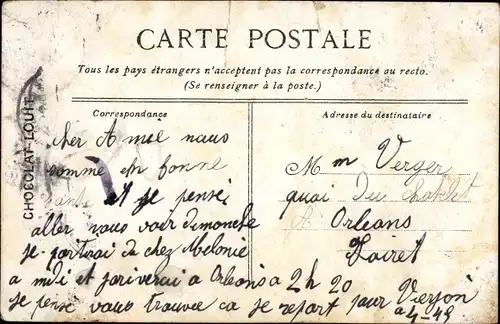 CARTE POSTALE
Tous les pays étrangers n'acceptent pas la correspondance au recto.
(Se renseigner à la poste.)
Correspondance
Adresse du destinataire
CHOCOLAT-LOUIT
cher Amie nous
somme en bonne
santé et je pense
aller vous voir dimanche
je partirai de chez Melonie
a midi et j'ariverai a Orleans a 2h 20
je pense vous trouvee ca je repart pour Vierzon
a 4-45
Mm Verger
quai Du
A Orleans
Loiret